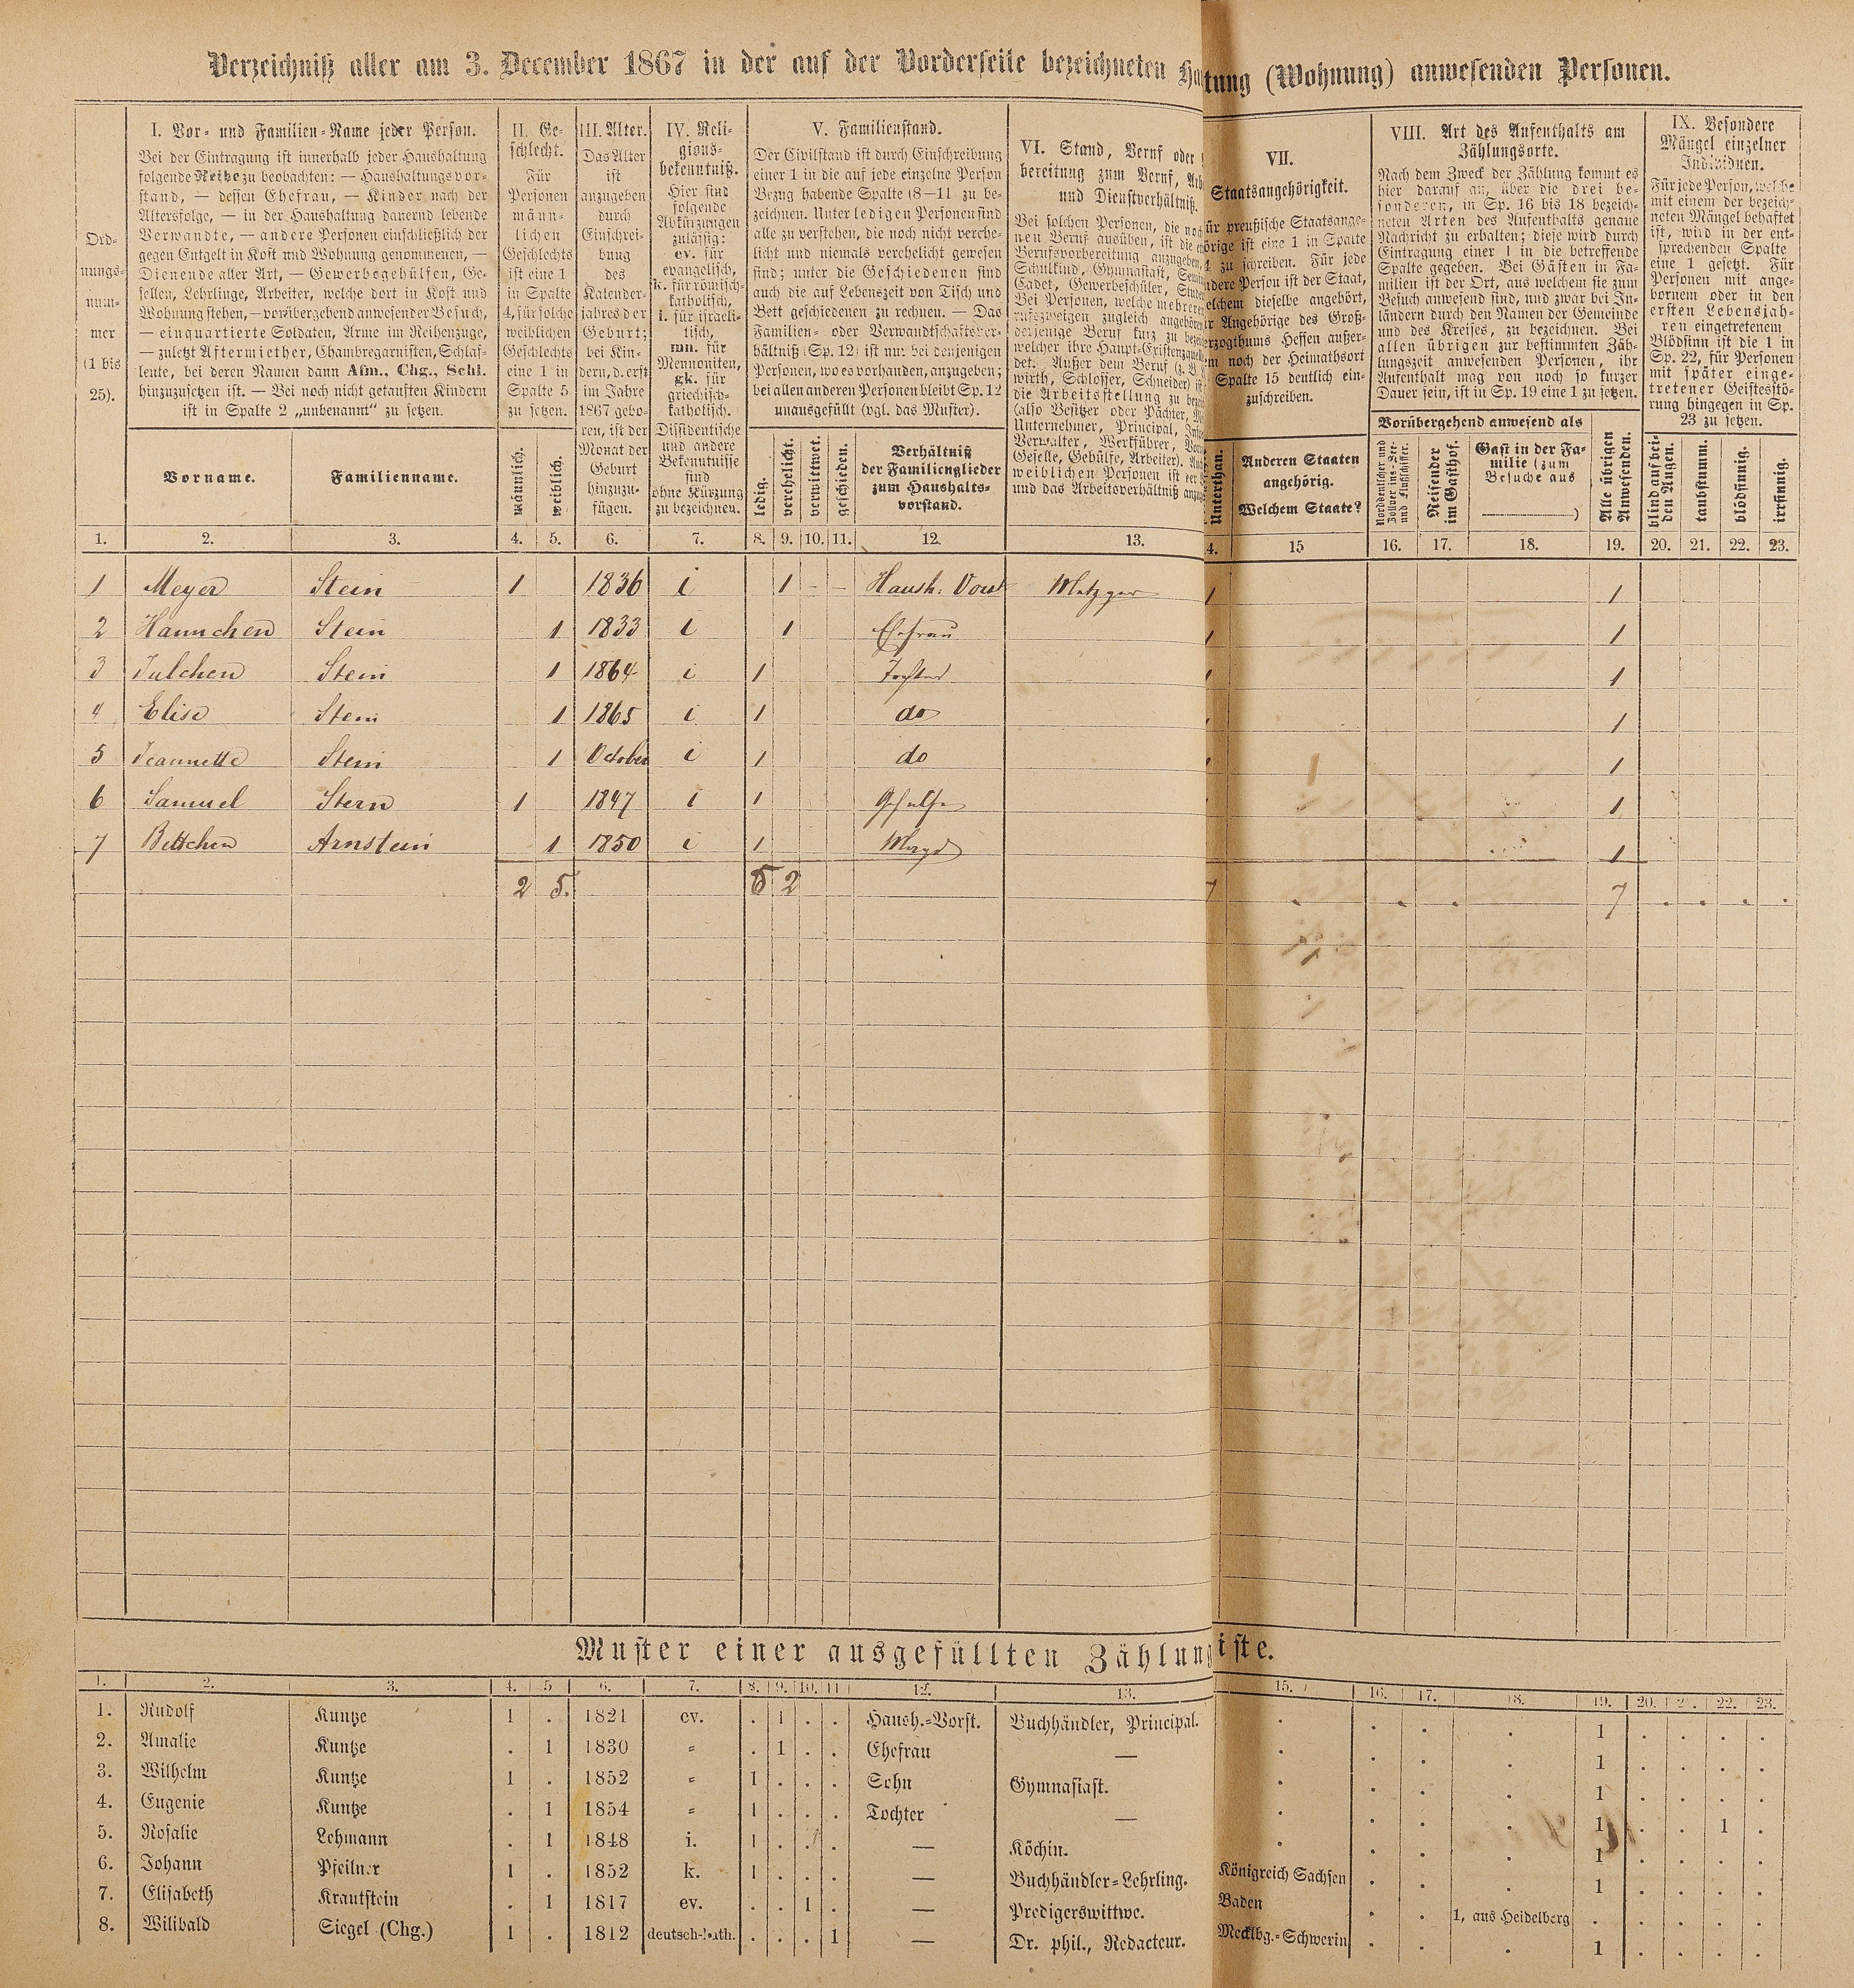 Verzeichniß aller am 3. December 1867 in der auf der Vorderseite bezeichneten Haltung (Wohnung) anwesenden Personen.
Ord-
nungs-
num-
mer
(1 bis
25).
I. Vor- und Familien-Name jeder Person.
Bei der Eintragung ist innerhalb jeder Haushaltung
folgende Reihe zu beobachten: — Haushaltungsvor-
stand, — dessen Ehefrau, — Kinder nach der
Altersfolge, — in der Haushaltung dauernd lebende
Verwandte, — andere Personen einschließlich der
gegen Entgelt in Kost und Wohnung genommenen, —
Dienende aller Art, — Gewerbsgehülfen, Ge-
sellen, Lehrlinge, Arbeiter, welche dort in Kost und
Wohnung stehen, — vorübergehend anwesender Besuch,
— einquartierte Soldaten, Arme im Reihenzuge,
— zuletzt Aftermiether, Chambregarnisten, Schlaf-
leute, bei deren Namen dann Afm., Chg., Schl.
hinzuzusetzen ist. — Bei noch nicht getauften Kindern
ist in Spalte 2 „unbenannt“ zu setzen.
Vorname.
Familienname.
II. Ge-
schlecht.
Für
Personen
männ-
lichen
Geschlechts
ist eine 1
in Spalte
4, für solche
weiblichen
Geschlechts
eine 1 in
Spalte 5
zu setzen.
männlich.
weiblich.
III. Alter.
Das Alter
ist
anzugeben
durch
Einschrei-
bung
des
Kalender-
jahres der
Geburt;
bei Kin-
dern, d. erst
im Jahre
1867 gebo-
ren, ist der
Monat der
Geburt
hinzuzu-
fügen.
IV. Reli-
gions-
bekenntniß.
Hier sind
folgende
Abkürzungen
zulässig:
ev. für
evangelisch,
k. für römisch-
katholisch,
i. für israeli-
tisch,
mn. für
Mennoniten,
gk. für
griechisch-
katholisch.
Dissidentische
und andere
Bekenntnisse
sind
ohne Kürzung
zu bezeichnen.
V. Familienstand.
Der Civilstand ist durch Einschreibung
einer 1 in die auf jede einzelne Person
Bezug habende Spalte (8—11 zu be-
zeichnen. Unter ledigen Personen sind
alle zu verstehen, die noch nicht verehe-
licht und niemals verehelicht gewesen
sind; unter die Geschiedenen sind
auch die auf Lebenszeit von Tisch und
Bett geschiedenen zu rechnen. — Das
Familien- oder Verwandtschaftsver-
hältniß (Sp. 12) ist nur bei denjenigen
Personen, wo es vorhanden, anzugeben;
bei allen anderen Personen bleibt Sp. 12
unausgefüllt (vgl. das Muster).
ledig.
verehelicht.
verwittwet.
geschieden.
Verhältniß
der Familienglieder
zum Haushalts-
vorstand.
VI. Stand, Beruf oder
bereitung zum Beruf,
und Dienstverhältniß.
Bei solchen Personen, die noch
nen Beruf ausüben, ist die
Berufsvorbereitung anzugeben,
Schulkind, Gymnasiast,
Cadet, Gewerbeschüler,
Bei Personen, welche mehreren
rufszweigen zugleich angehören
derjenige Beruf kurz zu
welcher ihre Haupt-Existenzquelle
det. Außer dem Beruf (z. B.
wirth, Schlosser, Schneider) ist
die Arbeitsstellung zu
(also Besitzer oder Pächter,
Unternehmer, Principal,
Verwalter, Werkführer,
Geselle, Gehülfe, Arbeiter).
weiblichen Personen ist der
und das Arbeitsverhältniß
VII.
Staatsangehörigkeit.
ür preußische Staatsange-
hörige ist eine 1 in Spalte
4 zu schreiben. Für jede
ndere Person ist der Staat,
elchem dieselbe angehört,
ir Angehörige des Groß-
erzogthums Hessen außer-
em noch der Heimathsort
Spalte 15 deutlich ein-
zuschreiben.
Unterthan.
Anderen Staaten
angehörig.
Welchem Staate?
VIII. Art des Aufenthalts am
Zählungsorte.
Nach dem Zweck der Zählung kommt es
hier darauf an, über die drei be-
sonderen, in Sp. 16 bis 18 bezeich-
neten Arten des Aufenthalts genaue
Nachricht zu erhalten; diese wird durch
Eintragung einer 1 in die betreffende
Spalte gegeben. Bei Gästen in Fa-
milien ist der Ort, aus welchem sie zum
Besuch anwesend sind, und zwar bei In-
ländern durch den Namen der Gemeinde
und des Kreises, zu bezeichnen. Bei
allen übrigen zur bestimmten Zäh-
lungszeit anwesenden Personen, ihr
Aufenthalt mag von noch so kurzer
Dauer sein, ist in Sp. 19 eine 1 zu setzen.
Vorübergehend anwesend als
Norddeutscher und
Zollver ins-See-
und Flußschiffer.
Reisender
im Gasthof.
Gast in der Fa-
milie (zum
Besuche aus
———)
Alle übrigen
Anwesenden.
IX. Besondere
Mängel einzelner
Individuen.
Für jede Person, welche
mit einem der bezeich-
neten Mängel behaftet
ist, wird in der ent-
sprechenden Spalte
eine 1 gesetzt. Für
Personen mit ange-
bornem oder in den
ersten Lebensjah-
ren eingetretenem
Blödsinn ist die 1 in
Sp. 22, für Personen
mit später einge-
tretener Geistesstö-
rung hingegen in Sp.
23 zu setzen.
blind auf bei-
den Augen.
taubstumm.
blödsinnig.
irrsinnig.
1. 2. 3. 4. 5. 6. 7. 8. 9. 10. 11. 12. 13. 4. 15 16. 17. 18. 19. 20. 21. 22. 23.
1 Meyer Stein 1 1836 i 1 - - Haush. Vorst Metzger 1 1
2 Hannchen Stein 1 1833 i 1 Ehefrau 1 1
3 Julchen Stein 1 1864 i 1 Tochter 1 1
4 Elise Stein 1 1865 i 1 do 1 1
5 Jeannette Stein 1 October i 1 do 1 1
6 Samuel Stern 1 1847 i 1 Gehülfe 1 1
7 Bettchen Arnstein 1 1850 i 1 Magd 1
2 5. 5 2 7 . . . 7 . . . .
Muster einer ausgefüllten Zählungsliste.
1. 2. 3. 4. 5 6. 7. 8. 9. 10. 11 12. 13. 15. 16. 17. 18. 19. 20. 21. 22. 23.
1. Rudolf Kuntze 1 . 1821 ev. . 1 . . Haush.-Vorst. Buchhändler, Principal. . . . . 1 . . . .
2. Amalie Kuntze . 1 1830 " . 1 . . Ehefrau — . . . . 1 . . . .
3. Wilhelm Kuntze 1 . 1852 " 1 . . . Sohn Gymnasiast. . . . . 1 . . . .
4. Eugenie Kuntze . 1 1854 " 1 . . . Tochter — . . . . 1 . . 1 .
5. Rosalie Lehmann . 1 1848 i. 1 . . . — Köchin. . . . . 1 . . . .
6. Johann Pfeilner 1 . 1852 k. 1 . . . — Buchhändler-Lehrling. Königreich Sachsen . . . 1 . . . .
7. Elisabeth Krautstein . 1 1817 ev. . . 1 . — Predigerswittwe. Baden . . 1, aus Heidelberg . . . . .
8. Wilibald Siegel (Chg.) 1 . 1812 deutsch-kath. . . . 1 — Dr. phil., Redacteur. Mecklbg.-Schwerin . . . 1 . . . .